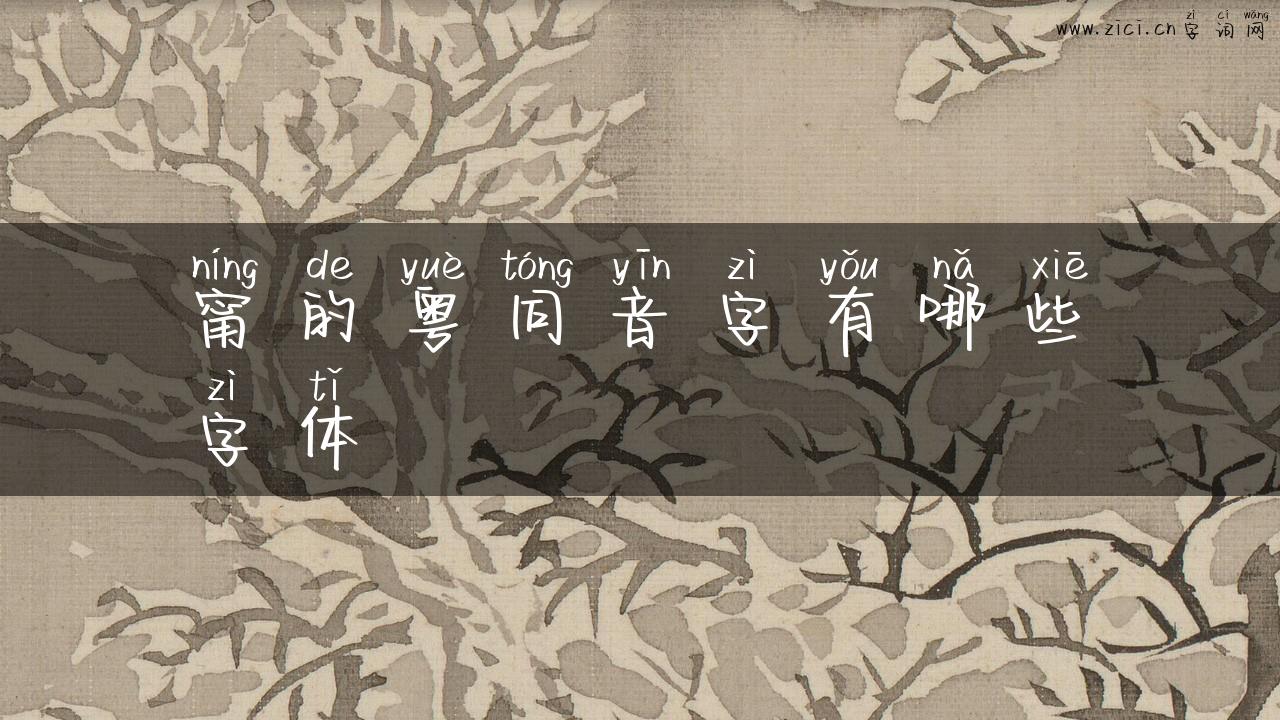 zì cí wǎng
www.zici.cn 字词网
níng de yuè tóng yīn zì yǒu nǎ xiē
甯的粤同音字有哪些
zì tǐ
字体